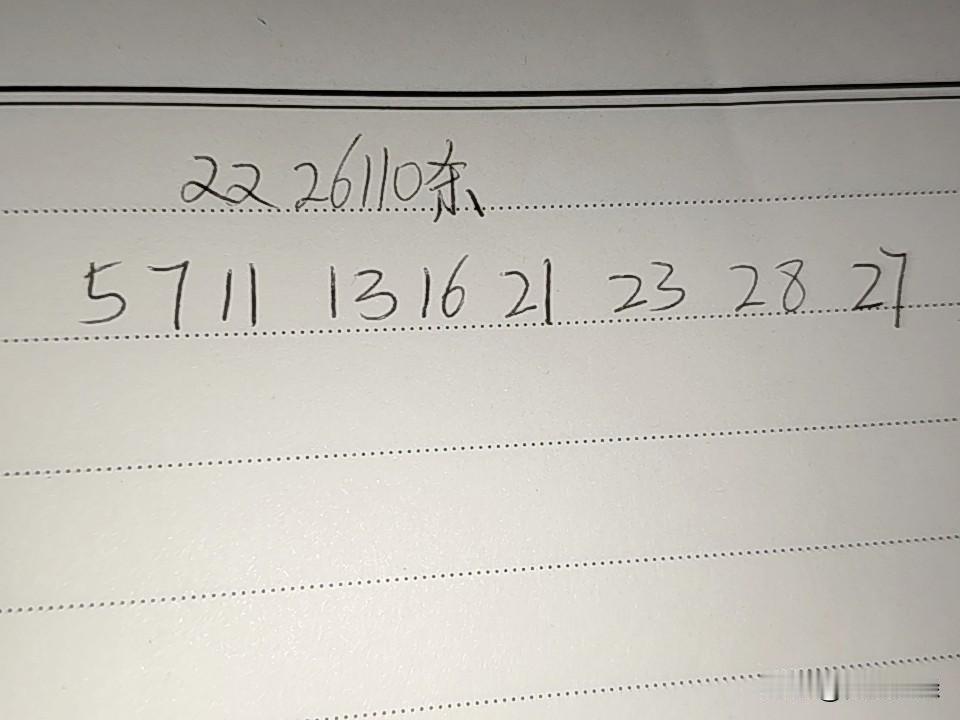 22 26110条
5 7 11 13 16 21 23 28 27